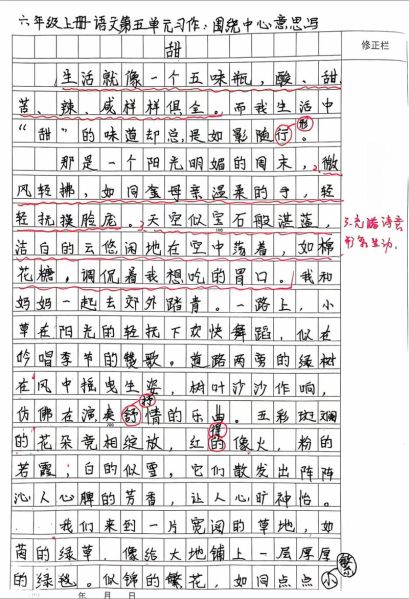 六年级上册·语文第五单元习作:围绕中心意思写
甜
修正栏
生活就像一个五味瓶,酸、甜、
苦、辣、咸样样俱全。而我生活中
“甜”的味道却总是如影随行。
形
那是一个阳光明媚的周末,微
风轻拂,如同
母亲温柔的手,轻
轻抚摸脸庞。天空似宝石般湛蓝,
洁白的云悠闲地在空中荡着,如棉
花糖,调侃着我想吃的胃口。我和
妈妈一起去郊外踏青。一路上,小
草在阳光的轻抚下欢快舞蹈,似在
吟唱季节的赞歌。道路两旁的绿树
在风中摇曳生姿,树叶沙沙作响,
仿佛在演奏舒情的乐曲。五彩斑斓
抒
的花朵竞相绽放,红的像火,粉的
得
若霞;白的似雪,它们散发出阵阵
沁人心脾的芳香,让人心旷神怡。
我们来到一片宽阔的草地,如
茵的绿草,像给大地铺上一层厚厚
的绿毯。似锦的繁花,如同点点小
繁
年 月 日